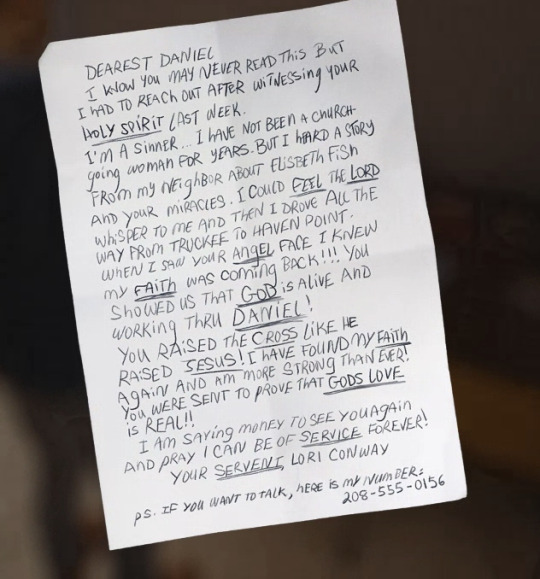 DEAREST DANIEL
I KNOW YOU MAY NEVER READ THIS BUT
I HAD TO REACH OUT AFTER WITNESSING YOUR
HOLY SPIRIT LAST WEEK.
I'M A SINNER... I HAVE NOT BEEN A CHURCH-
going WOMAN FOR YEARS. BUT I HEARD A STORY
FROM my NEIGHBOR ABOUT ELISBETH FISH
AND YOUR MIRACLES. I COULD FEEL THE LORD
WHISPER TO ME AND THEN I DROVE ALL THE
WAY FROM TRUCKEE TO HAVEN POINT.
WHEN I SAW YOUR ANGEL FACE I KNEW
my FAITH WAS COMING BACK!!! YOU
SHOWED US THAT GOD IS ALIVE AND
WORKING THRU DANIEL!
YOU RAISED THE CROSS LIKE HE
RAISED JESUS! I HAVE FOUND MY FAITH
AGAIN AND AM MORE STRONG THAN EVER!
YOU WERE SENT TO PROVE THAT GODS LOVE
is REAL!!
I AM SAVING MONEY TO SEE YOU AGAIN
AND PRAY I CAN BE OF SERVICE FOREVER!
YOUR SERVENT, LORI CONWAY
PS. IF YOU WANT TO TALK, HERE IS MY NUMBER:
208-555-0156